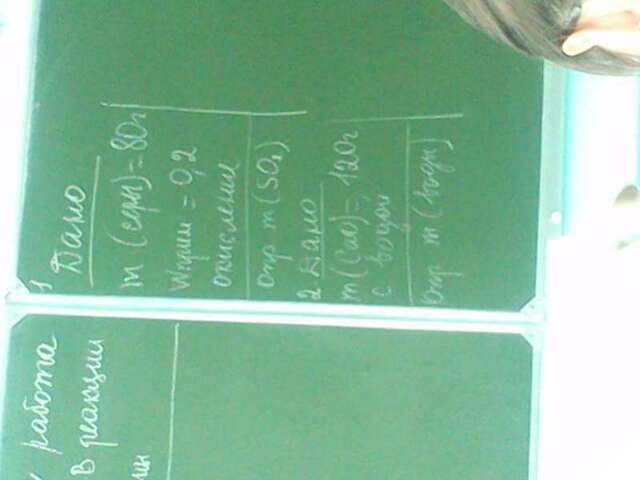 работа
в реакции
1
Дано
m (серы) = 80г
Wприм = 0,2
окисление
опр m (SO₂)
2 Дано
m (CaO) = 120г
с водой
опр m (воды)